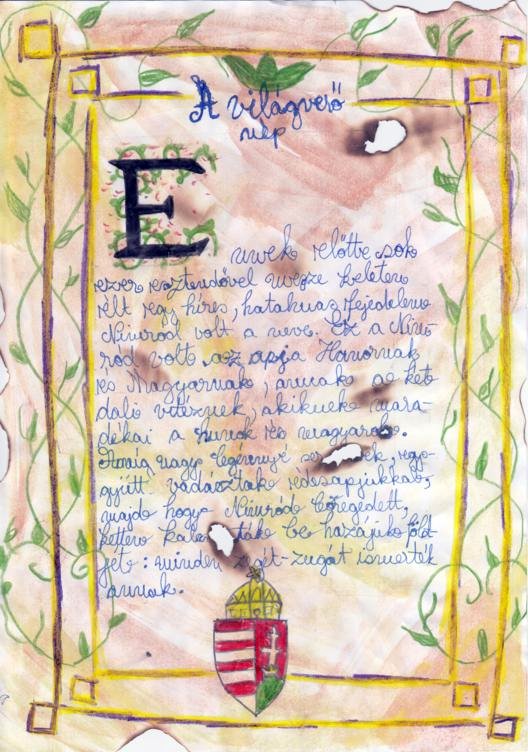 A világverő
nép
E
nnek előtte sok
ezer esztendővel messze keleten
élt egy híres, hatalmas fejedelem
Nimród volt a neve. Ez a Nim-
ród volt az apja Hunornak
és Magyarnak, annak a két
dali vitéznek, akiknek mara-
dékai a hunok és magyarok.
Amíg nagy legénnyé egy-
gyütt vadásztak édesapjukkal,
majd hogy Nimród öregedett,
ketten be hazájuk föld-
jét: minden zegét-zugát ismerték
annak.